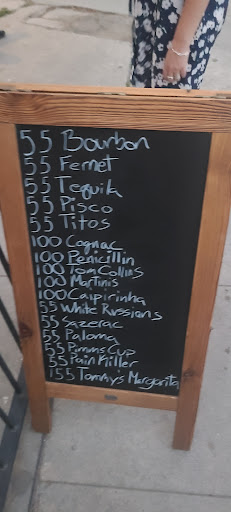 55 Bourbon
55 Fernet
55 Tequila
55 Pisco
55 Titos
100 Cognac
100 Penicillin
100 Tom Collins
100 Martinis
100 Caipirinha
55 White Russians
55 Sazerac
55 Paloma
55 Pimms Cup
55 Pain Killer
155 Tommy's Margarita